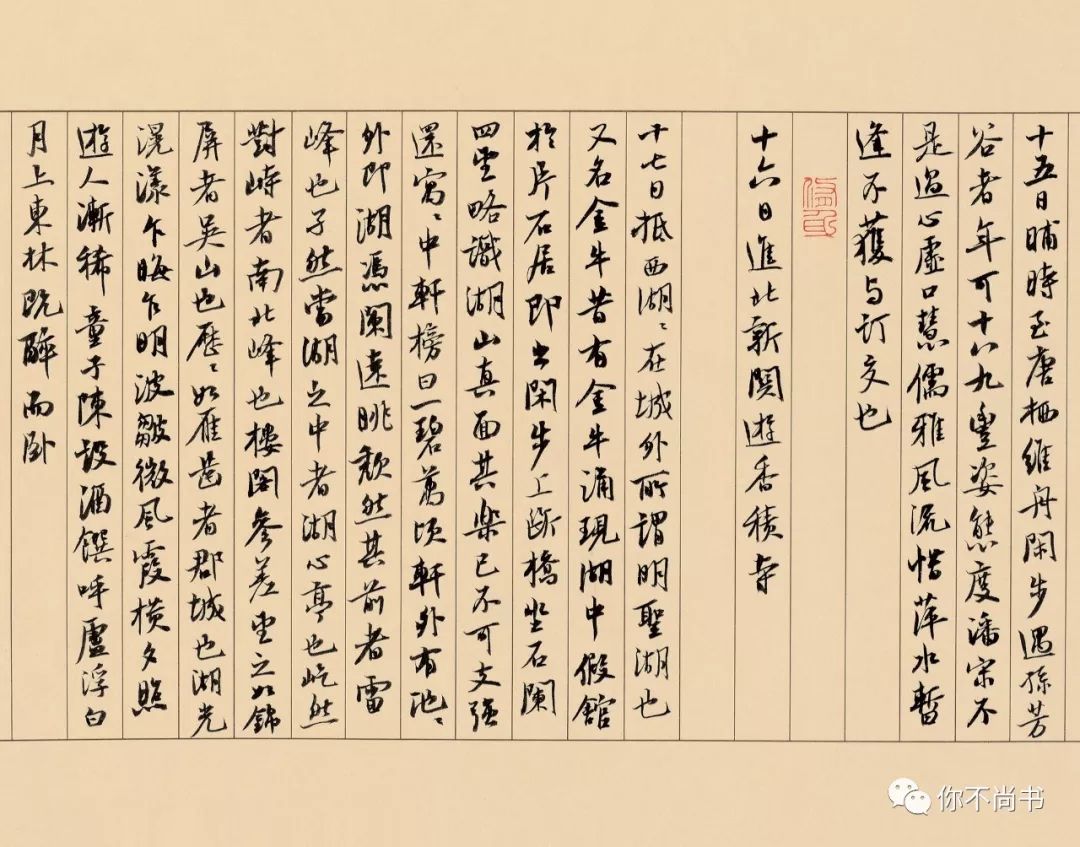 十五日晡時至唐栖維舟閑步遇孫芳
谷者年可十八九豐姿態度潘宋不
是過心虛口慧儒雅風流惜萍水暫
逢不獲与訂交也
十六日進北新關遊香積寺
十七日抵西湖〻在城外所謂明聖湖也
又名金牛昔有金牛涌現湖中假館
於片石居即出閑步上斷橋坐石闌
四望略識湖山真面其樂已不可支強
還寓〻中軒榜曰一碧萬頃軒外有池〻
外即湖憑闌遠眺頹然其前者雷
峰也孑然當湖之中者湖心亭也屹然
對峙者南北峰也樓閣參差望之如錦
屏者吳山也歷〻如雁齒者郡城也湖光
滉漾乍晦乍明波皺微風霞橫夕照
遊人漸稀童子陳設酒饌呼盧浮白
月上東林既醉而卧
你不尚书